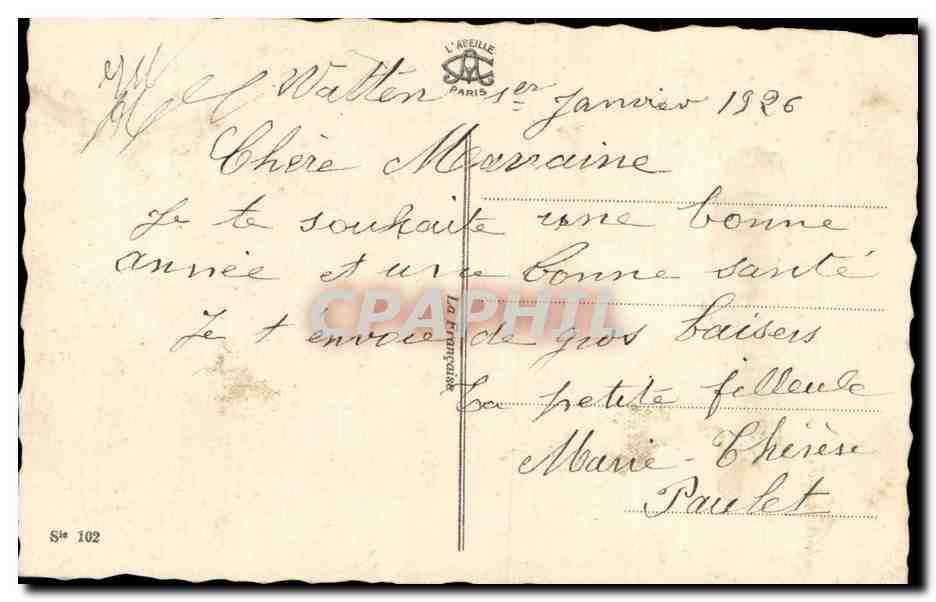 L'ABEILLE
PARIS
Watten 1er Janvier 1926
Chère Marraine
Je te souhaite une bonne
année et une bonne santé
CPAPHIL
Je t envoie de gros baisers
La petite filleule
Marie-Thérèse
Paulet
La Française
Sie 102